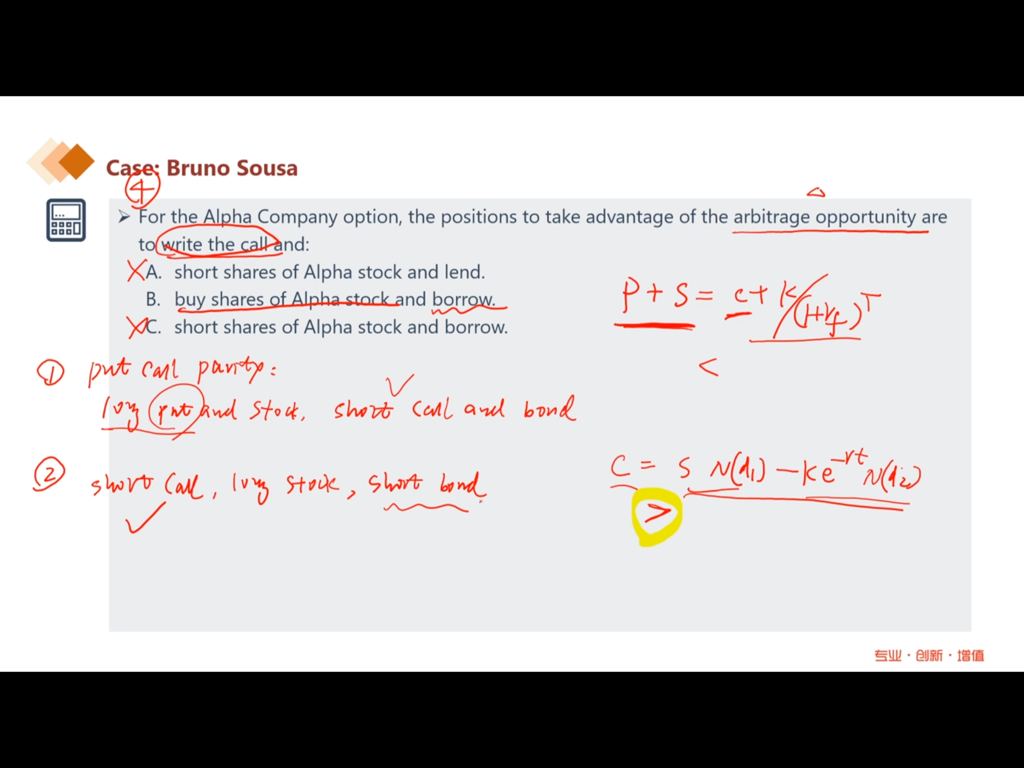 Case: Bruno Sousa
④
➤ For the Alpha Company option, the positions to take advantage of the arbitrage opportunity are
to write the call and:
A. short shares of Alpha stock and lend.
B. buy shares of Alpha stock and borrow.
C. short shares of Alpha stock and borrow.
P + S = c + K/(1+rf)^T
<
① put call parity:
long put and stock, short call and bond
② short call, long stock, short bond
C = S N(d1) - Ke^-rt N(d2)
>
专业·创新·增值